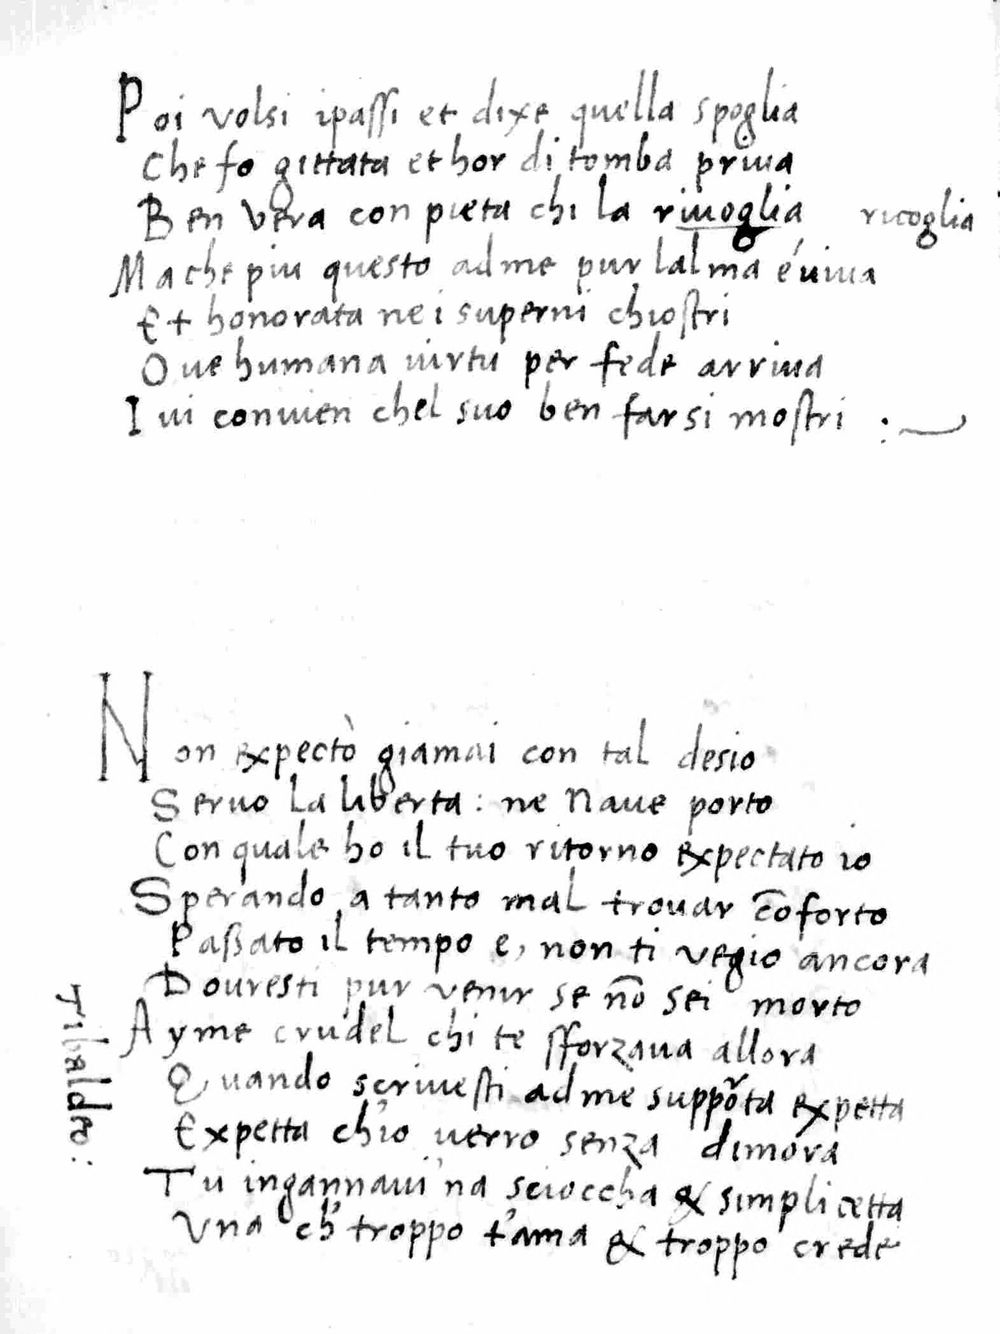 Poi volsi ipassi et dixe quella spoglia
Che fo gittata et hor di tomba priua
Ben vera con pieta chi la riuoglia ricoglia
Ma che piu questo ad me pur lalma é uiua
Et honorata nei superni chiostri
Oue humana uirtu per fede arriua
Iui conuien chel suo ben farsi mostri :
Non expectò giamai con tal desio
Seruo La liberta : ne Naue porto
Con quale ho il tuo ritorno expectato io
Sperando a tanto mal trouar cõforto
Passato il tempo e, non ti vegio ancora
Douresti pur venir se nõ sei morto
Ayme crudel chi te sforzaua allora
Quando scriuesti ad me supporta expetta
Expetta ch'io uerro senza dimora
Tu ingannaui 'na scioccha & simplicetta
Vna ch' troppo t'ama & troppo crede
Tibaldeo: